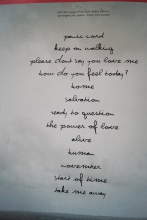 panic cord
keep on walking
please don't say you love me
how do you feel today?
home
salvation
ready to question
the power of love
alive
human
november
start of time
take me away